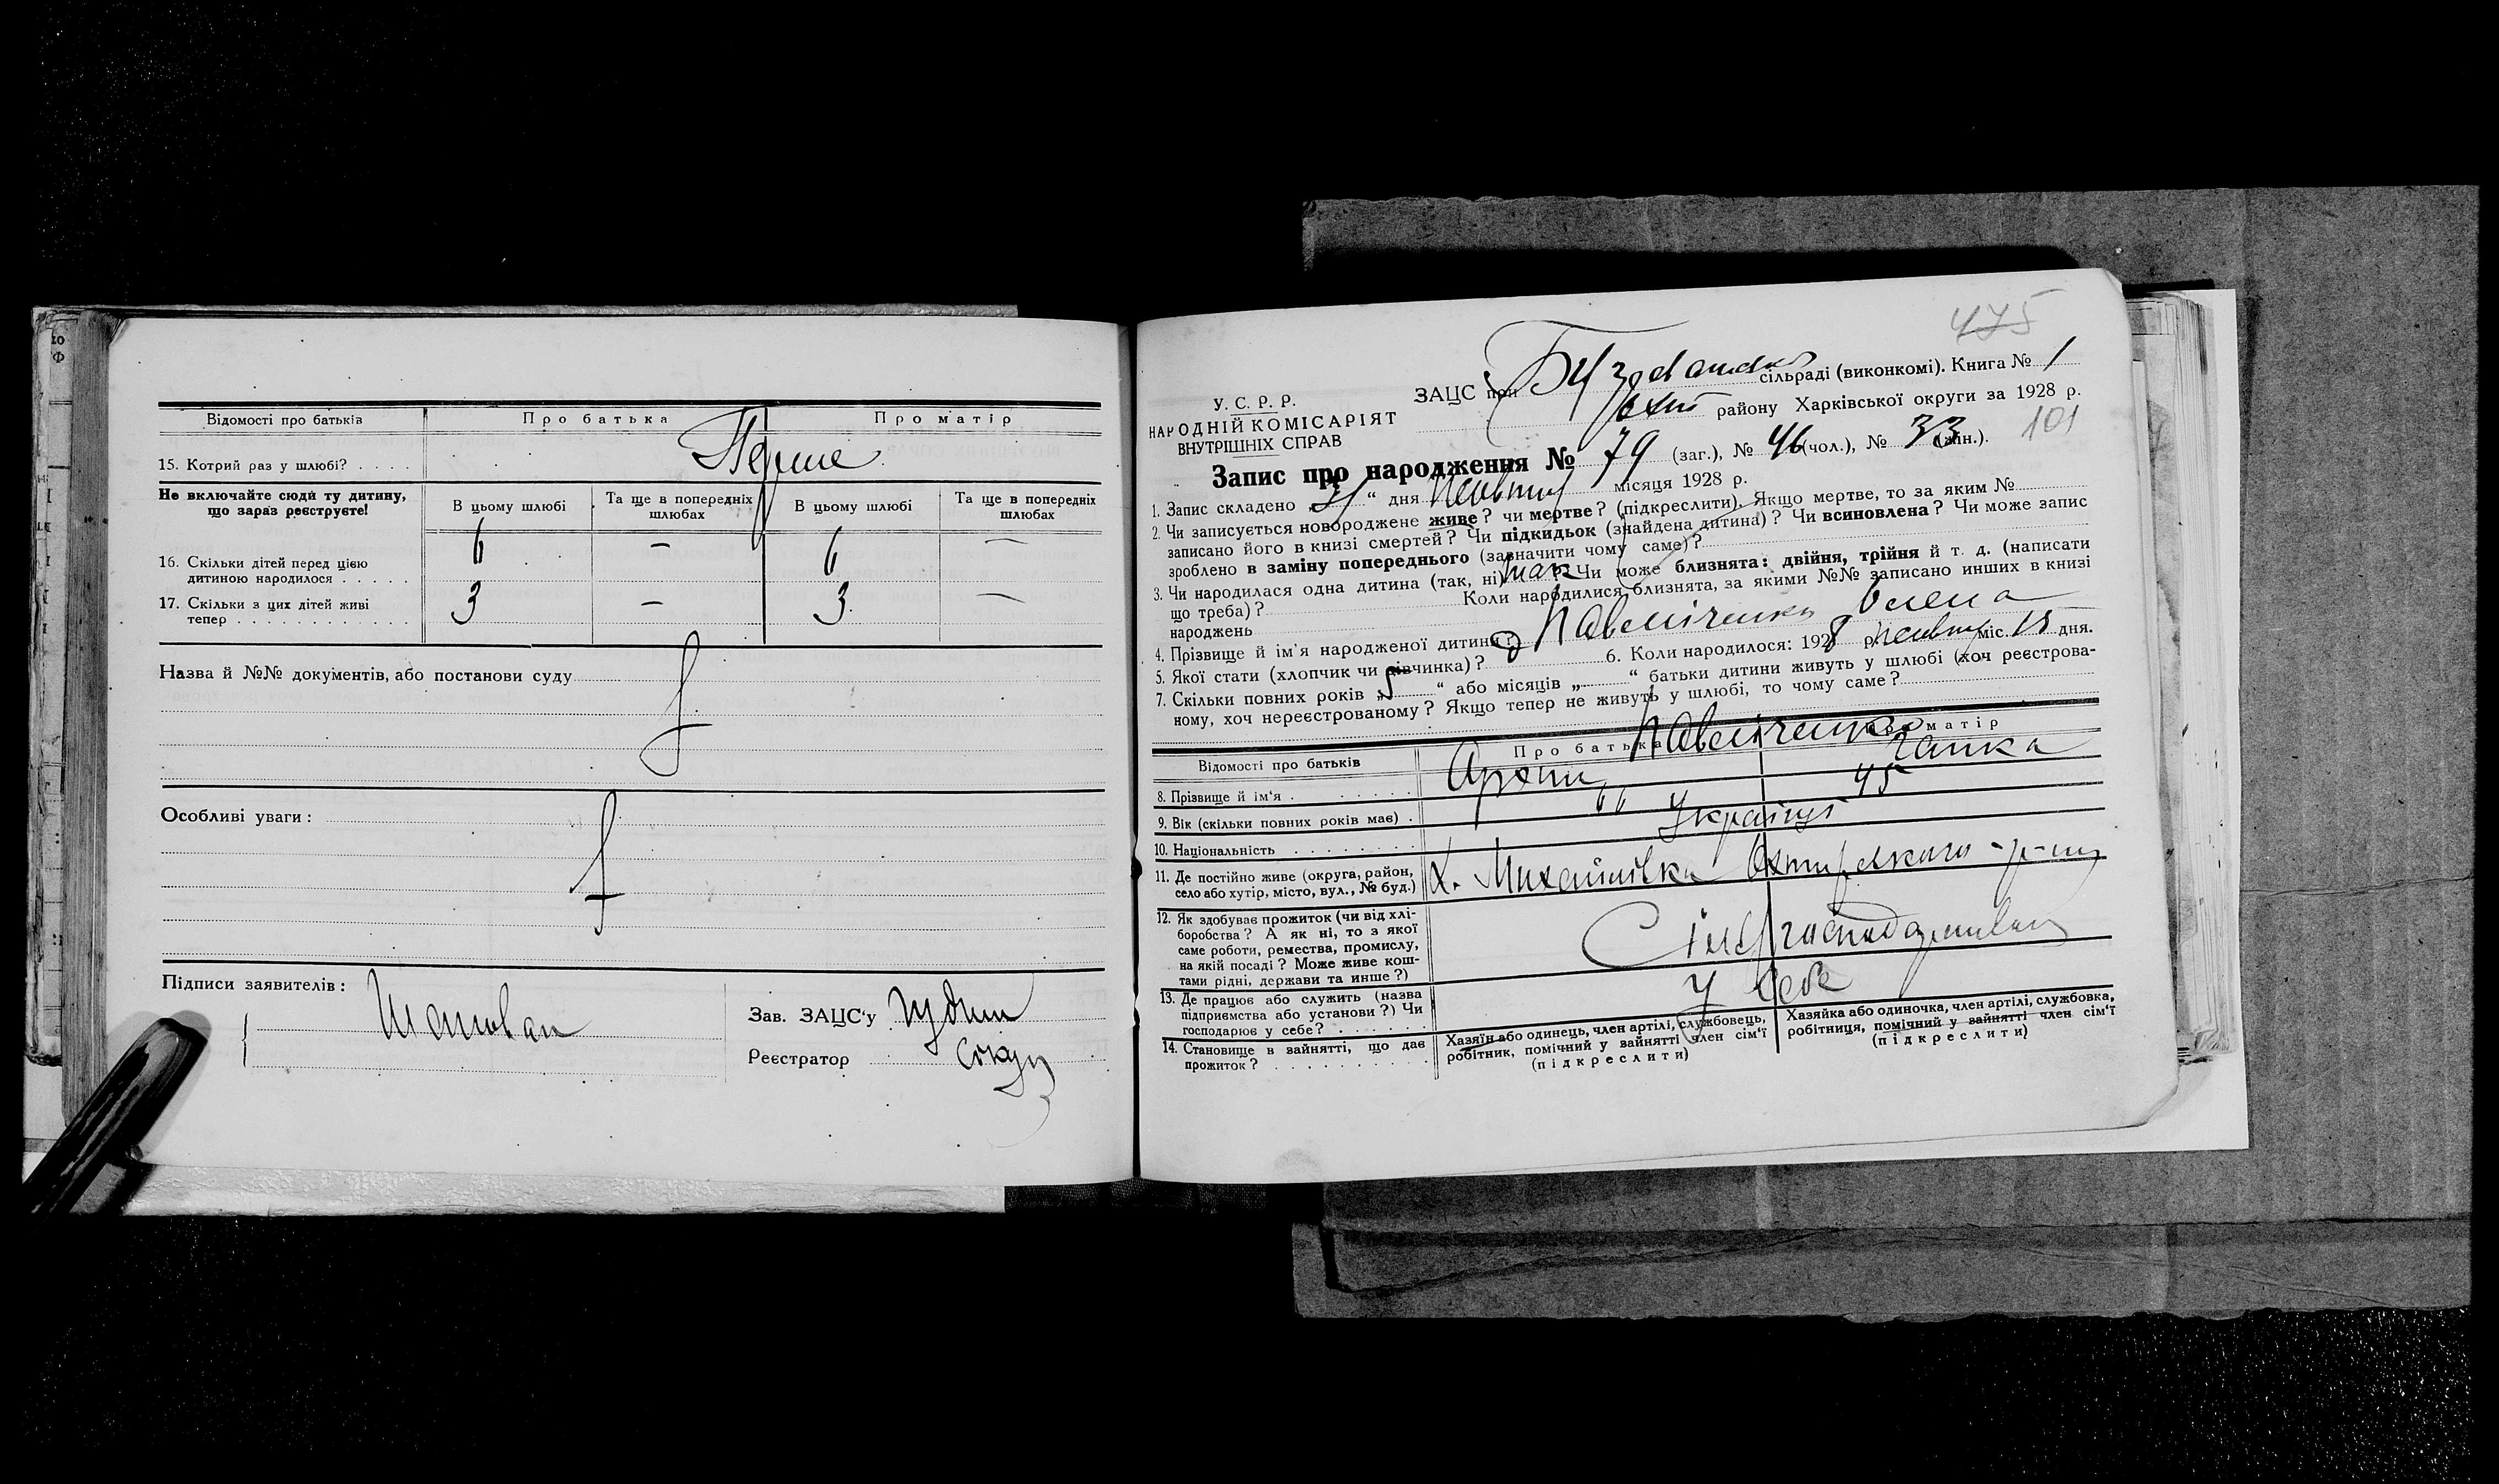 Відомості про батьків
Про батька
Про матір
15. Котрий раз у шлюбі? . . . .
Перше
Не включайте сюди ту дитину,
що зараз реєструєте!
В цьому шлюбі
Та ще в попередніх
шлюбах
В цьому шлюбі
Та ще в попередніх
шлюбах
16. Скільки дітей перед цією
дитиною народилося . . . . .
6 — 6 —
17. Скільки з цих дітей живі
тепер . . . . . . . . . . . .
3 — 3 —
Назва й №№ документів, або постанови суду
Особливі уваги:
Підписи заявителів:
Зав. ЗАЦС'у
Реєстратор
475
У. С. Р. Р.
НАРОДНІЙ КОМІСАРІЯТ
ВНУТРІШНІХ СПРАВ
ЗАЦС при сільраді (виконкомі). Книга № 1
Охт району Харківської округи за 1928 р.
101
Запис про народження № 79 (заг.), № 46 (чол.), № 33 (жін.).
1. Запис складено „ “ дня місяця 1928 р.
2. Чи записується новороджене живе? чи мертве? (підкреслити). Якщо мертве, то за яким №
записано його в книзі смертей? Чи підкидьок (знайдена дитина)? Чи всиновлена? Чи може запис
зроблено в заміну попереднього (зазначити чому саме)?
3. Чи народилася одна дитина (так, ні) так Чи може близнята: двійня, трійня й т. д. (написати
що треба)? Коли народилися близнята, за якими №№ записано инших в книзі
народжень
4. Прізвище й ім'я народженої дитини? Павліченко Олена
5. Якої стати (хлопчик чи дівчинка)? 6. Коли народилося: 1928 р. міс. 15 дня.
7. Скільки повних років „ “ або місяців „ “ батьки дитини живуть у шлюбі (хоч реєстрова-
ному, хоч нереєстрованому? Якщо тепер не живуть у шлюбі, то чому саме?
Відомості про батьків
Про батька
Про матір
8. Прізвище й ім'я . . . . . .
Павліченко
Архип
Ганка
9. Вік (скільки повних років має) .
45
10. Національність . . . . . . . .
Українці
11. Де постійно живе (округа, район,
село або хутір, місто, вул., № буд.)
х. Михайлівка Охтирського р-ну
12. Як здобуває прожиток (чи від хлі-
боробства? А як ні, то з якої
саме роботи, ремества, промислу,
на якій посаді? Може живе кош-
тами рідні, держави та инше?)
13. Де працює або служить (назва
підприємства або установи?) Чи
господарює у себе? . . . . . .
У себе
14. Становище в зайнятті, що дає
прожиток? . . . . . . . . . .
Хазяїн або одинець, член артілі, службовець,
робітник, помічний у зайнятті член сім'ї
(підкреслити)
Хазяйка або одиночка, член артілі, службовка,
робітниця, помічний у зайнятті член сім'ї
(підкреслити)